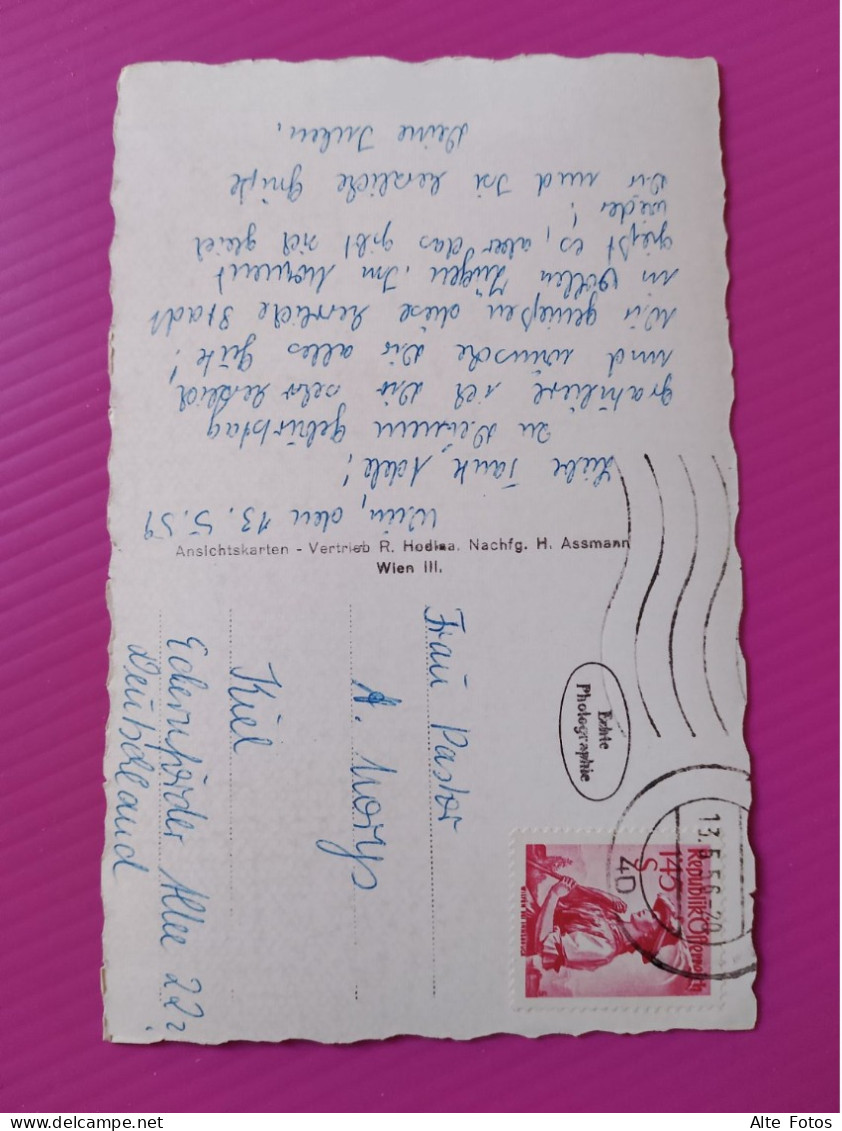 Wien, den 13. 5. 59
Liebe Tante Adele!
Zu Deinem Geburtstag
gratuliere ich Dir sehr herzlich,
und wünsche Dir alles Gute!
Wir genießen diese herrliche Stadt
in vollen Zügen. Im Moment
gießt es, aber das gibt sich gleich
wieder!
Dir und herzliche Grüße
Deine
Ansichtskarten - Vertrieb R. Hodina. Nachfg. H. Assmann
Wien III.
Frau Pastor
A. Morys
Kiel
Eckernförder Allee 22
Deutschland
Echte
Photographie
13.5.56-20
40
Republik Österreich
1·45
S